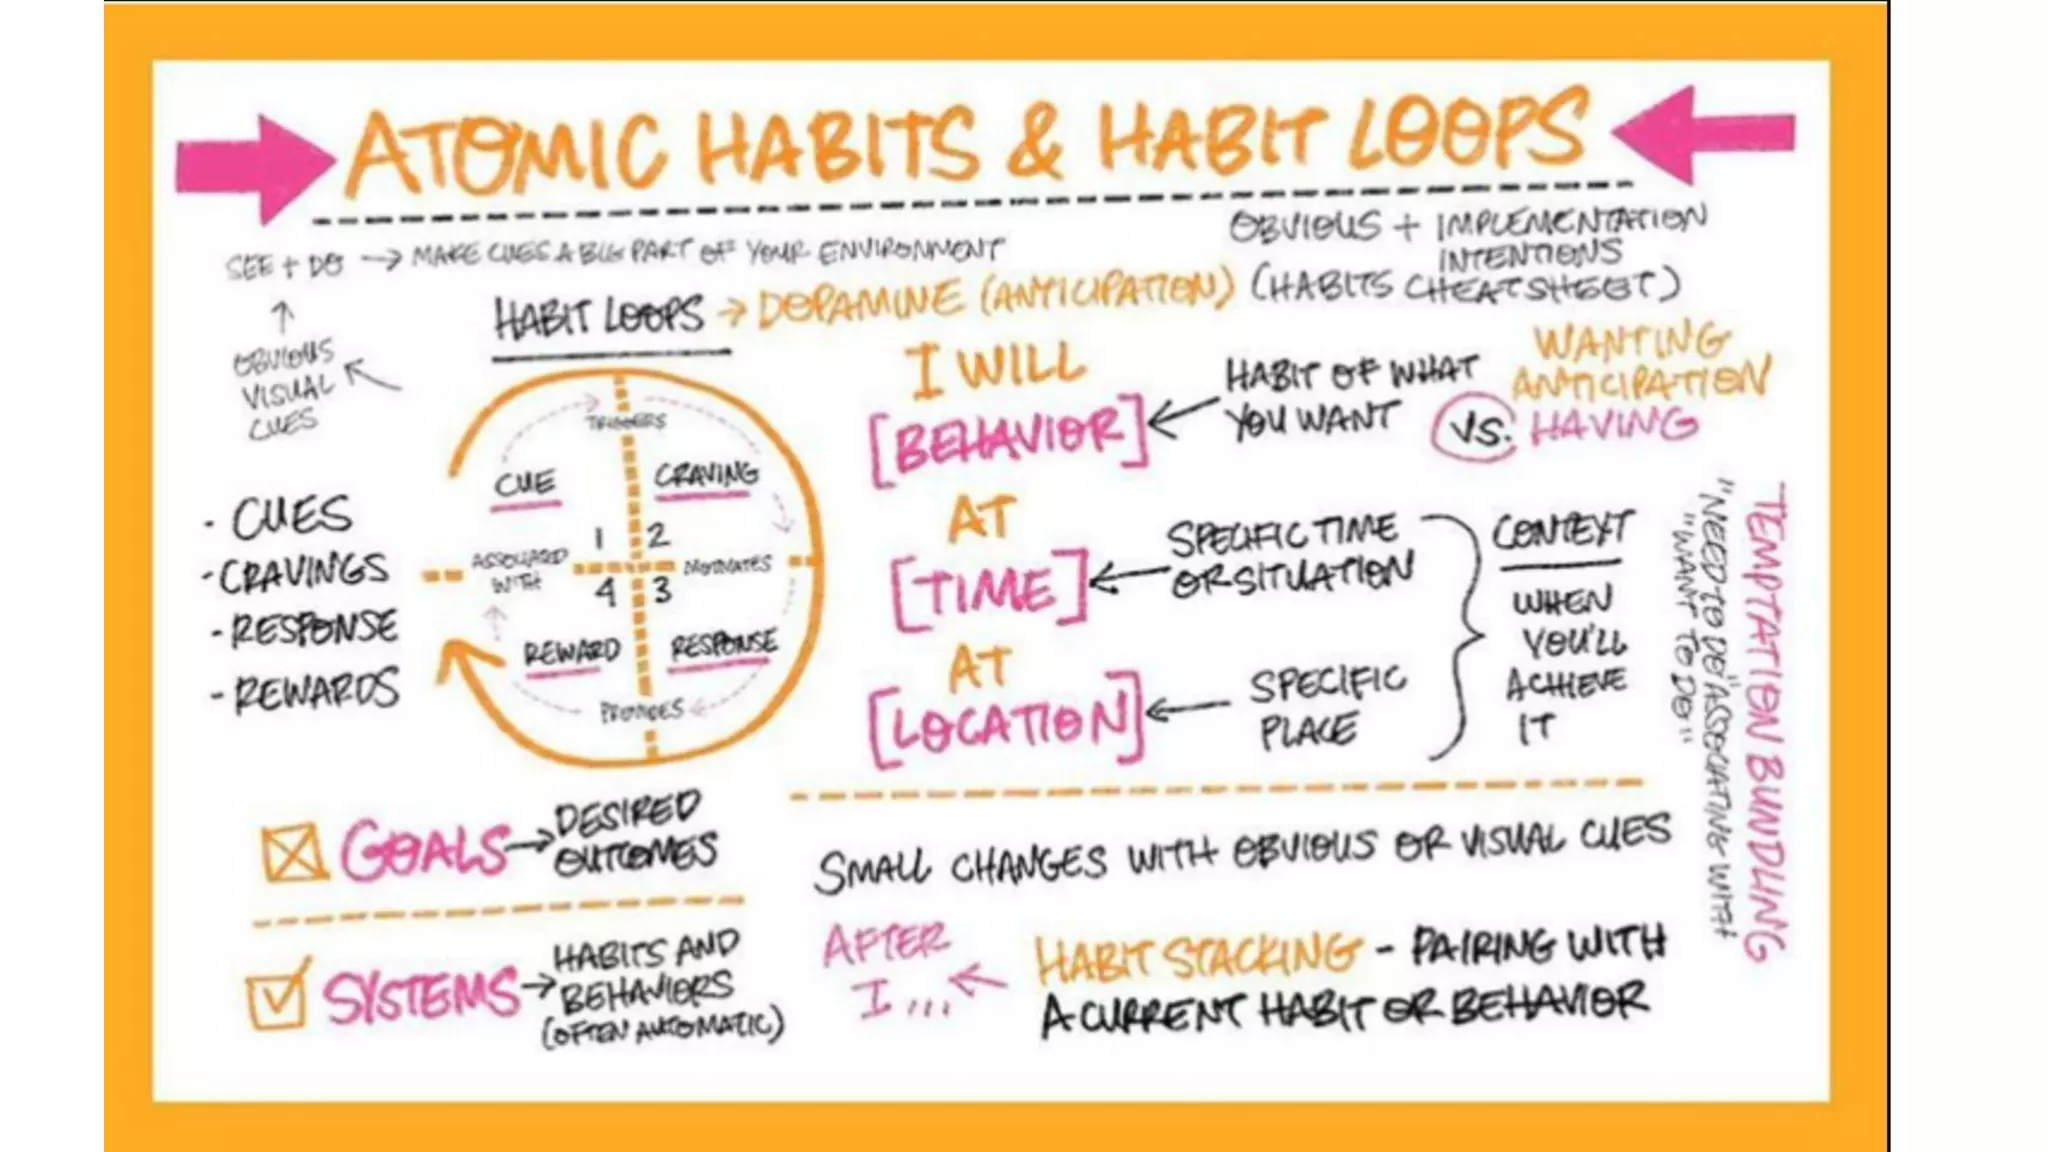 ATOMIC HABITS & HABIT LOOPS
SEE + DO → MAKE CUES A BIG PART OF YOUR ENVIRONMENT
OBVIOUS
VISUAL
CUES
OBVIOUS + IMPLEMENTATION
INTENTIONS
(HABITS CHEATSHEET)
HABIT LOOPS → DOPAMINE (ANTICIPATION)
- CUES
- CRAVINGS
- RESPONSE
- REWARDS
TRIGGERS
CUE
CRAVING
1 2
ASSOCIATED
WITH
MOTIVATES
4 3
REWARD
RESPONSE
PROVIDES
I WILL
[BEHAVIOR]
HABIT OF WHAT
YOU WANT
WANTING
ANTICIPATION
VS. HAVING
AT
[TIME]
SPECIFIC TIME
OR SITUATION
AT
[LOCATION]
SPECIFIC
PLACE
CONTEXT
WHEN
YOU'LL
ACHIEVE
IT
TEMPTATION BUNDLING
"NEED TO DO" ASSOCIATING WITH
"WANT TO DO"
GOALS → DESIRED
OUTCOMES
SYSTEMS → HABITS AND
BEHAVIORS
(OFTEN AUTOMATIC)
SMALL CHANGES WITH OBVIOUS OR VISUAL CUES
AFTER
I ...
HABIT STACKING - PAIRING WITH
A CURRENT HABIT OR BEHAVIOR